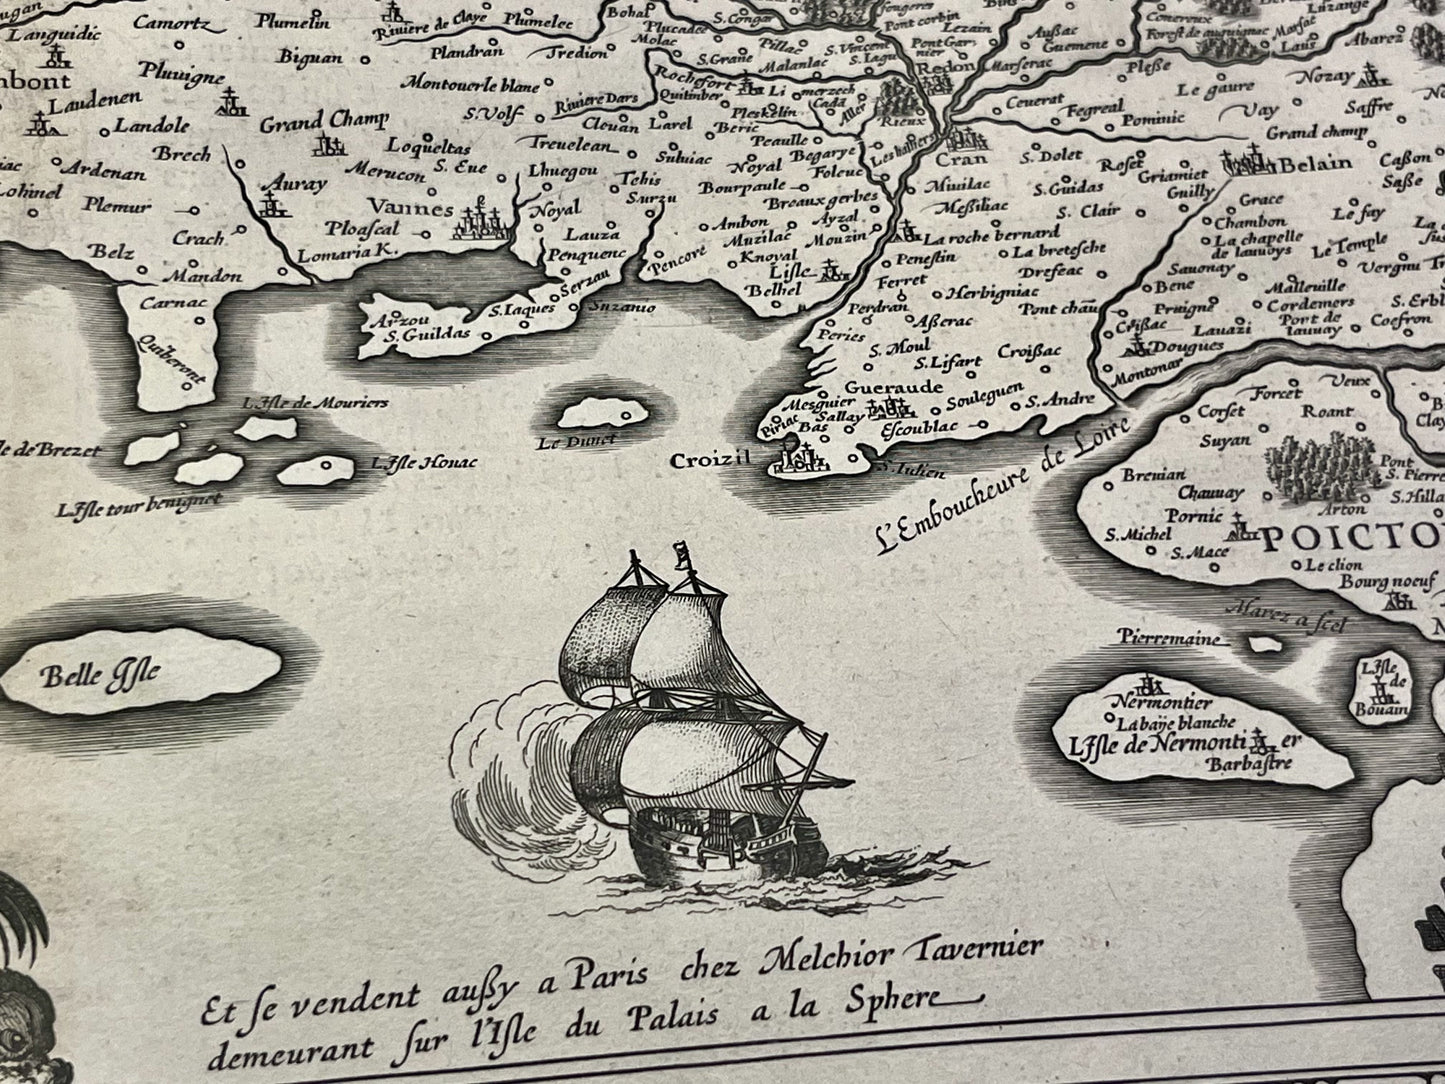 Languidic
Camortz
Plumelin
Riuiere de Claye
Plumelec
Bohal
Plucadee
S. Congar
Pont corbin
Lezain
Bins
Conereux
Forest de auruignac
Marsac
Luzange
Laus
Abarez
Biguan
Plandran
Tredion
Molac
S. Grane
Pillac
Malanlac
S. Vincent
S. Lagu
Pont Gar-
nier
Redon
Außac
Guemene
Marserac
Pleße
Nozay
Pluuigne
Montouerle blane
Rochefort
Quitinber
Li
merzech
Cada
Allee
Rieux
Le gaure
Vay
Saffre
Laudenen
Landole
Grand Champ
S. Volf
Riuiere Dars
Cleuan
Larel
Pleskelin
Beric
Peaulle
Ceuerat
Fegreal
Pominic
Grand champ
Brech
Loqueltas
Treuelean
Suluiac
Noyal
Begarye
Leshalliers
Cran
S. Dolet
Roset
Griamiet
Belain
Caßon
Ardenan
Merucon
S. Eue
Lhuegou
Tehis
Bourpaule
Foleuc
Miuilac
S. Guidas
Guilly
Saße
Lohinel
Plemur
Auray
Vannes
Noyal
Surzu
Breaux gerbes
Meßiliac
S. Clair
Grace
Le fay
Crach
Ploascal
Lauza
Ambon
Ayzal
La roche bernard
Chambon
La chapelle
de lauuoys
Le Temple
Belz
Lomaria K.
Penquenc
Pencore
Muzilac
Mouzin
Knoyal
Penestin
La bretesche
Sauonay
Vergnu
Mandon
Serzau
Lisle
Belhel
Ferret
Drefeac
Bene
Malleuille
Carnac
Arzou
S. Guildas
S. Iaques
Suzanio
Perdran
Herbigniac
Pont chau
Pruigne
Cordemers
Port de
lauuay
S. Erbl
Peries
Aßerac
Crißac
Lauazi
Coefron
Quiberont
S. Moul
S. Lifart
Croißac
Dougues
Montonar
Gueraude
L'Isle de Mouriers
Mesquier
Sallay
Souleguen
S. Andre
Corset
Forcet
Veux
Roant
Le Dunet
Piriac
Bas
Escoublac
Suyan
Croizil
S. Iulien
L'Isle Houac
L'Isle tour benignet
L'Emboucheure de Loire
Breuian
Chauuay
Pont
S. Pierre
S. Hilla
Arton
Pornic
S. Michel
S. Mace
POICTO
Le clion
Bourg noeuf
Marez a scel
Pierremaine
L'Isle
de
Bouain
Belle Isle
Nermontier
Labaÿe blanche
L'Isle de Nermontier
Barbastre
Et se vendent außy a Paris chez Melchior Tavernier
demeurant sur l'Isle du Palais a la Sphere